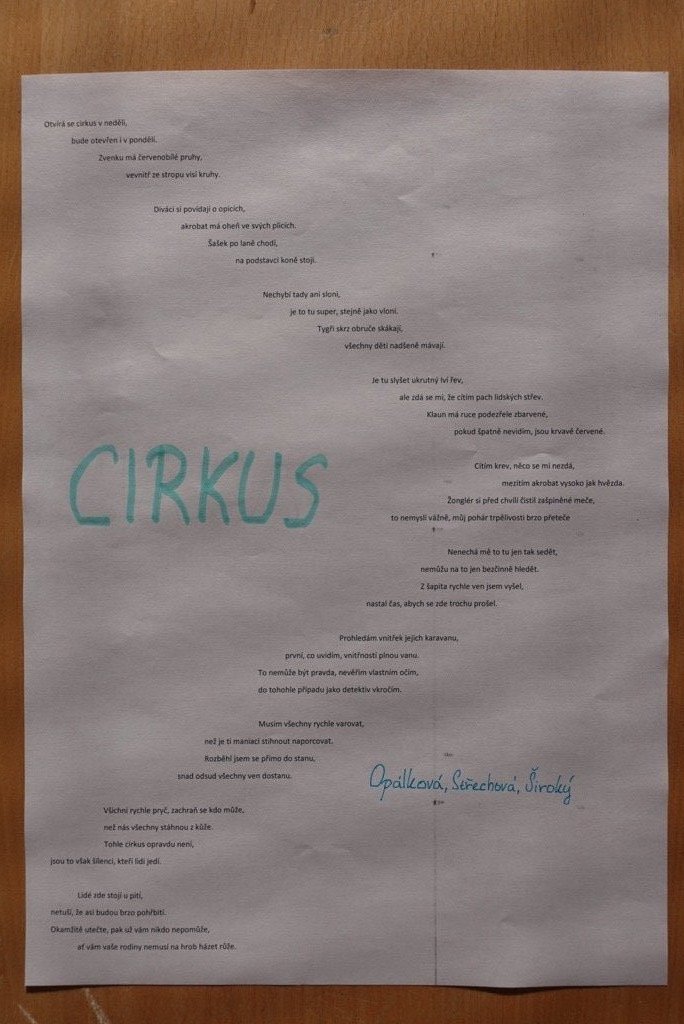 Otvírá se cirkus v neděli,
bude otevřen i v pondělí.
Zvenku má červenobílé pruhy,
vevnitř ze stropu visí kruhy.
Diváci si povídají o opicích,
akrobat má oheň ve svých plicích.
Šašek po laně chodí,
na podstavci koně stojí.
Nechybí tady ani sloni,
je to tu super, stejně jako vloni.
Tygři skrz obruče skákají,
všechny děti nadšeně mávají.
Je tu slyšet ukrutný lví řev,
ale zdá se mi, že cítím pach lidských střev.
Klaun má ruce podezřele zbarvené,
pokud špatně nevidím, jsou krvavě červené.
Cítím krev, něco se mi nezdá,
mezitím akrobat vysoko jak hvězda.
Žonglér si před chvílí čistil zašpiněné meče,
to nemyslí vážně, můj pohár trpělivosti brzo přeteče
Nenechá mě to tu jen tak sedět,
nemůžu na to jen bezčinně hledět.
Z šapita rychle ven jsem vyšel,
nastal čas, abych se zde trochu prošel.
CIRKUS
Prohledám vnitřek jejich karavanu,
první, co uvidím, vnitřností plnou vanu.
To nemůže být pravda, nevěřím vlastním očím,
do tohohle případu jako detektiv vkročím.
Musím všechny rychle varovat,
než je ti maniaci stihnout naporcovat.
Rozběhl jsem se přímo do stanu,
snad odsud všechny ven dostanu.
Opálková, Střechová, Široký
Všichni rychle pryč, zachraň se kdo může,
než nás všechny stáhnou z kůže.
Tohle cirkus opravdu není,
jsou to však šílenci, kteří lidi jedí.
Lidé zde stojí u pití,
netuší, že asi budou brzo pohřbiti.
Okamžitě utečte, pak už vám nikdo nepomůže,
ať vám vaše rodiny nemusí na hrob házet růže.